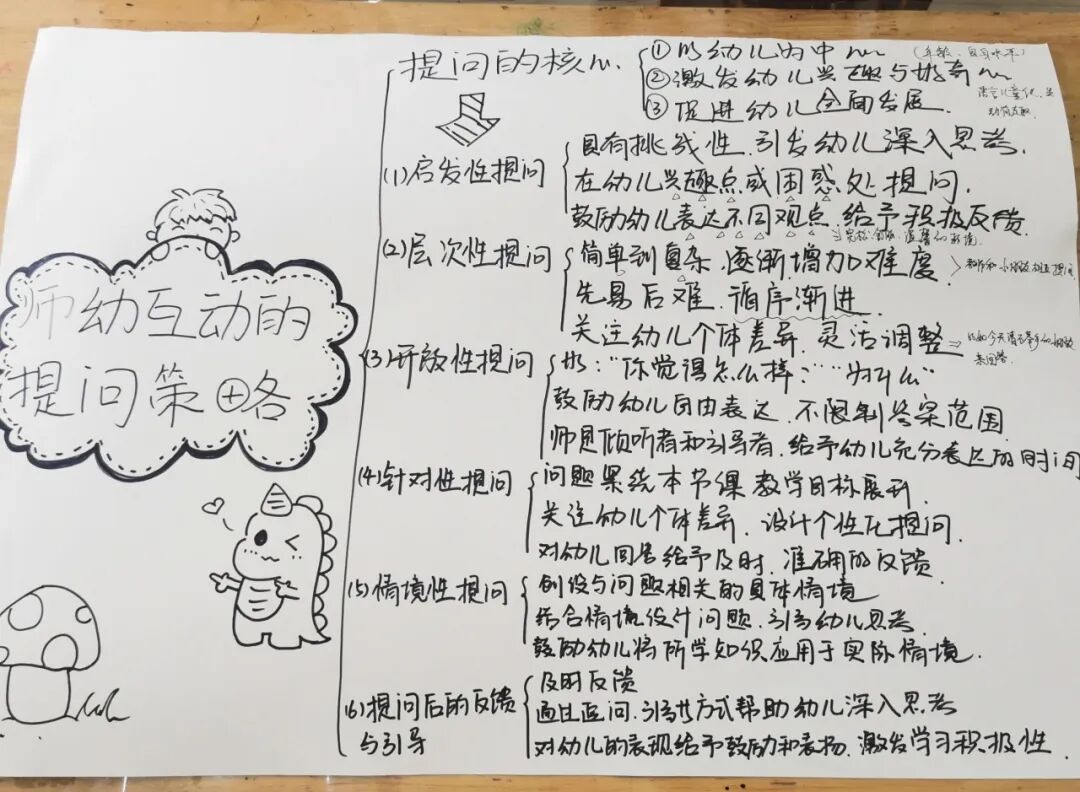 师幼互动的
提问策略
提问的核心
①以幼儿为中心
②激发幼儿兴趣与好奇心
③促进幼儿全面发展
(1)启发性提问
具有挑战性、引发幼儿深入思考、
在幼儿兴趣点或困惑处提问、
鼓励幼儿表达不同观点、给予积极反馈
(2)层次性提问
简单到复杂、逐渐增加难度
先易后难、循序渐进
关注幼儿个体差异、灵活调整
(3)开放性提问
如:“你觉得怎么样?”“为什么”
鼓励幼儿自由表达、不限制答案范围
师是倾听者和引导者、给予幼儿充分表达的时间
(4)针对性提问
问题围绕本节课教学目标展开、
关注幼儿个体差异、设计个性化提问
对幼儿回答给予及时、准确的反馈
(5)情境性提问
创设与问题相关的具体情境
结合情境设计问题、引导幼儿思考、
鼓励幼儿将所学知识应用于实际情境、
(6)提问后的反馈
与引导
及时反馈
通过追问、引导等方式帮助幼儿深入思考
对幼儿的表现给予鼓励和表扬、激发学习积极性